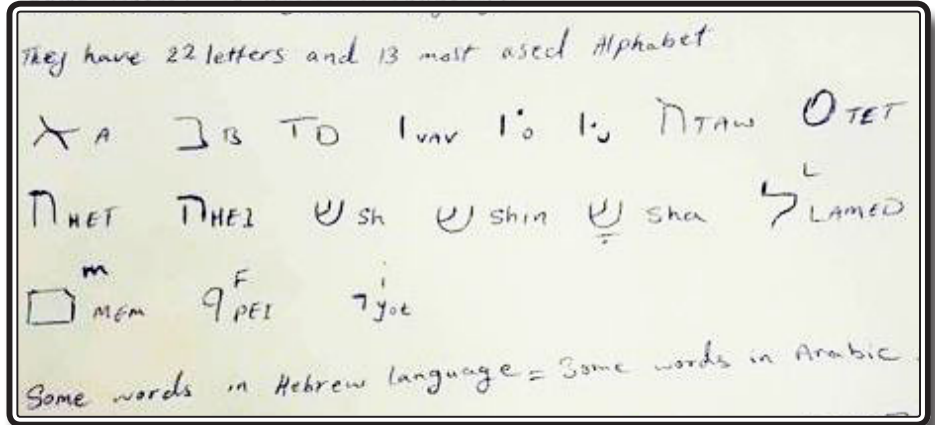 They have 22 letters and 13 most ased Alphabet
א A ב B T D ו VAV וֹ o וּ u ת TAW O TET
ח HET ה HEI ש sh ש shin שָ sha ל L LAMED
ם m MEM ף F PEI י i yot
Some words in Hebrew language = Some words in Arabic.